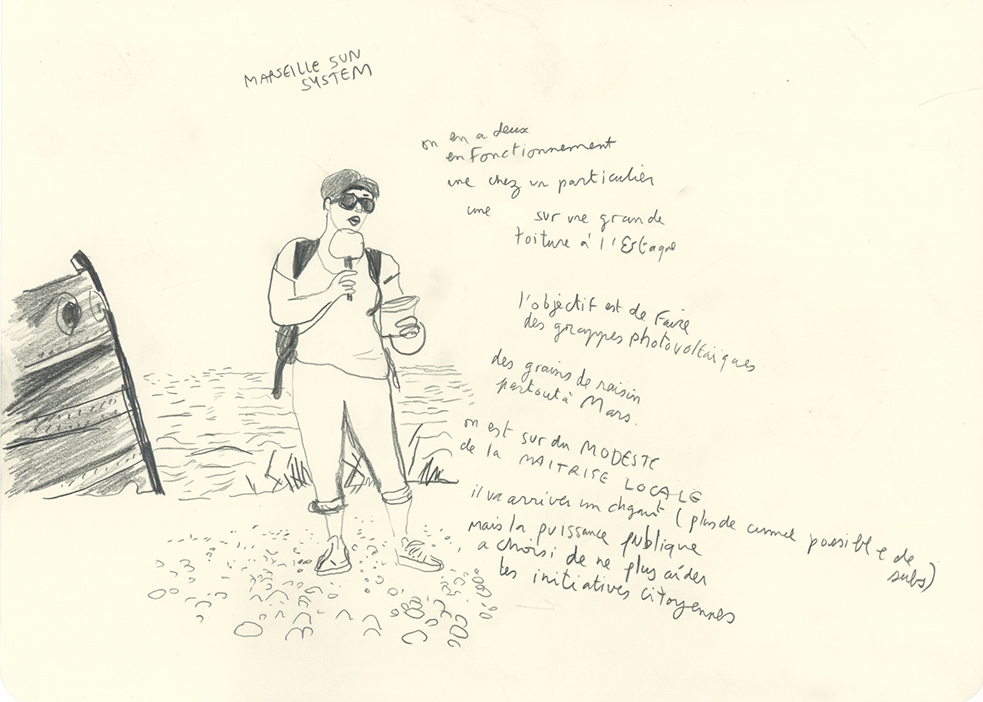 MARSEILLE SUN
SYSTEM
on en a deux
en fonctionnement
une chez un particulier
une sur une grande
toiture à l'Estaque
l'objectif est de faire
des grappes photovoltaïques
des grains de raisin
partout à Mars.
on est sur du MODESTE
de la MAITRISE LOCALE
il va arriver un (plus de possible de
subs)
mais la puissance publique
a choisi de ne plus aider
les initiatives citoyennes